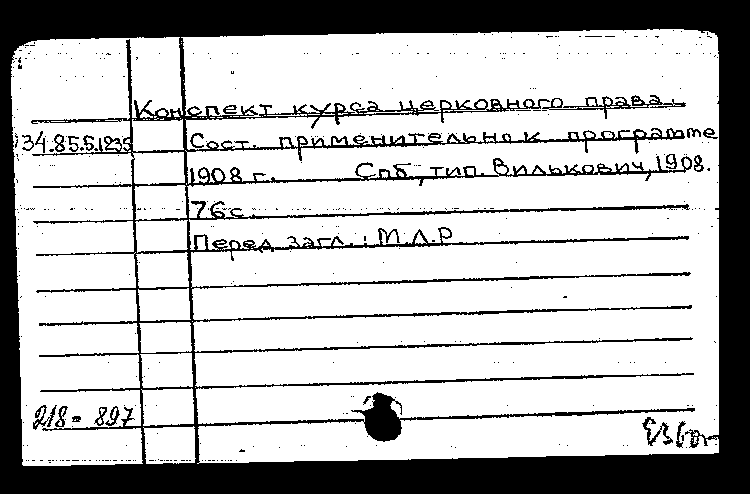 Конспект курса церковного права.
34.85.5.1235 Сост. применительно к программе
1908 г. Спб, тип. Вилькович, 1908.
76 с.
Перед загл.: М.Л.Р
218 = 897